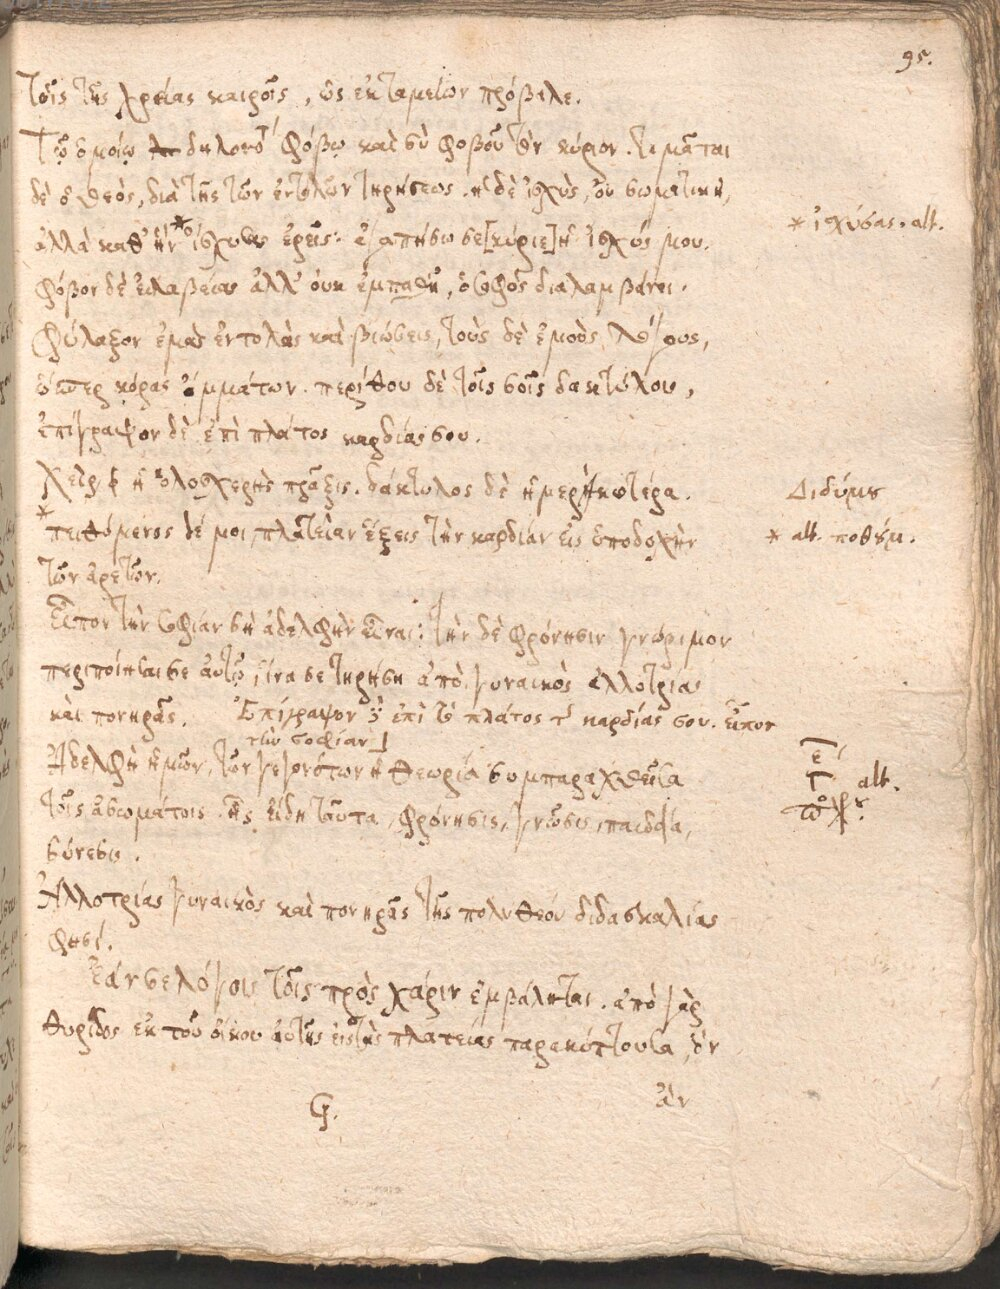 95.
τοῖς τῆς χρείας καιροῖς, ὡς ἐκ ταμείων πρόβαλε.
Τῷ ὁμοίῳ δηλονότι φόβῳ καὶ σὺ φοβοῦ τὸν κύριον. τιμᾶται
δὲ ὁ θεὸς, διὰ τῆς τῶν ἐντολῶν τηρήσεως. ἡ δὲ ἰσχὺς, οὐ σωματικὴ,
ἀλλὰ καθ' ἣν * ὁ ἰσχυσας ἐρεῖς· ἀγαπήσω σε [κύριε] ἡ ἰσχύς μου.
* ἰσχύσας. alt.
φόβον δὲ εὐλαβείας ἀλλ' οὐκ ἐμπαθῆ, ὁ σοφὸς διαλαμβάνει.
Φύλαξον ἐμὰς ἐντολὰς καὶ βιώσεις, τοὺς δὲ ἐμοὺς λόγους,
ὥσπερ κόρας ὀμμάτων. περίθου δὲ τοῖς σοῖς δακτύλοις,
ἐπίγραψον δὲ ἐπὶ πλάτος καρδίας σου.
Χεὶρ ἡ ὁλοσχερὴς πρᾶξις. δάκτυλος δὲ ἡ μερικωτέρα.
Διδύμου
* πειθόμενος δέ μοι πλατεῖαν ἕξεις τὴν καρδίαν εἰς ὑποδοχὴν
* alt. ποθούμ.
τῶν ἀρετῶν.
Εἶπον τὴν σοφίαν σὴν ἀδελφὴν εἶναι: τὴν δὲ φρόνησιν γνώριμον
περιποίησαι σεαυτῷ, ἵνα σε τηρήσῃ ἀπὸ γυναικὸς ἀλλοτρίας
καὶ πονηρᾶς. Ἐπίγραψον δὲ ἐπὶ τὸ πλάτος τ καρδίας σου. εἶπον
τὴν σοφίαν
Ἀδελφὴ ἡμῶν, τῶν γεγονότων ἡ θεωρία συμπαραχθεῖσα
alt.
τοῖς ἀσωμάτοις. ἧς εἴδη ταῦτα, φρόνησις, γνῶσις, παιδεία,
σύνεσις.
Ἀλλοτρίας γυναικὸς καὶ πονηρᾶς τῆς πολυθέου διδασκαλίας
φησί.
Ἐάν σε λόγοις τοῖς πρὸς χάριν ἐμβάληται. ἀπὸ γὰρ
θυρίδος ἐκ τοῦ οἴκου αὐτῆς εἰς τὰς πλατείας παρακύπτουσα, ὃν
G.
ἂν